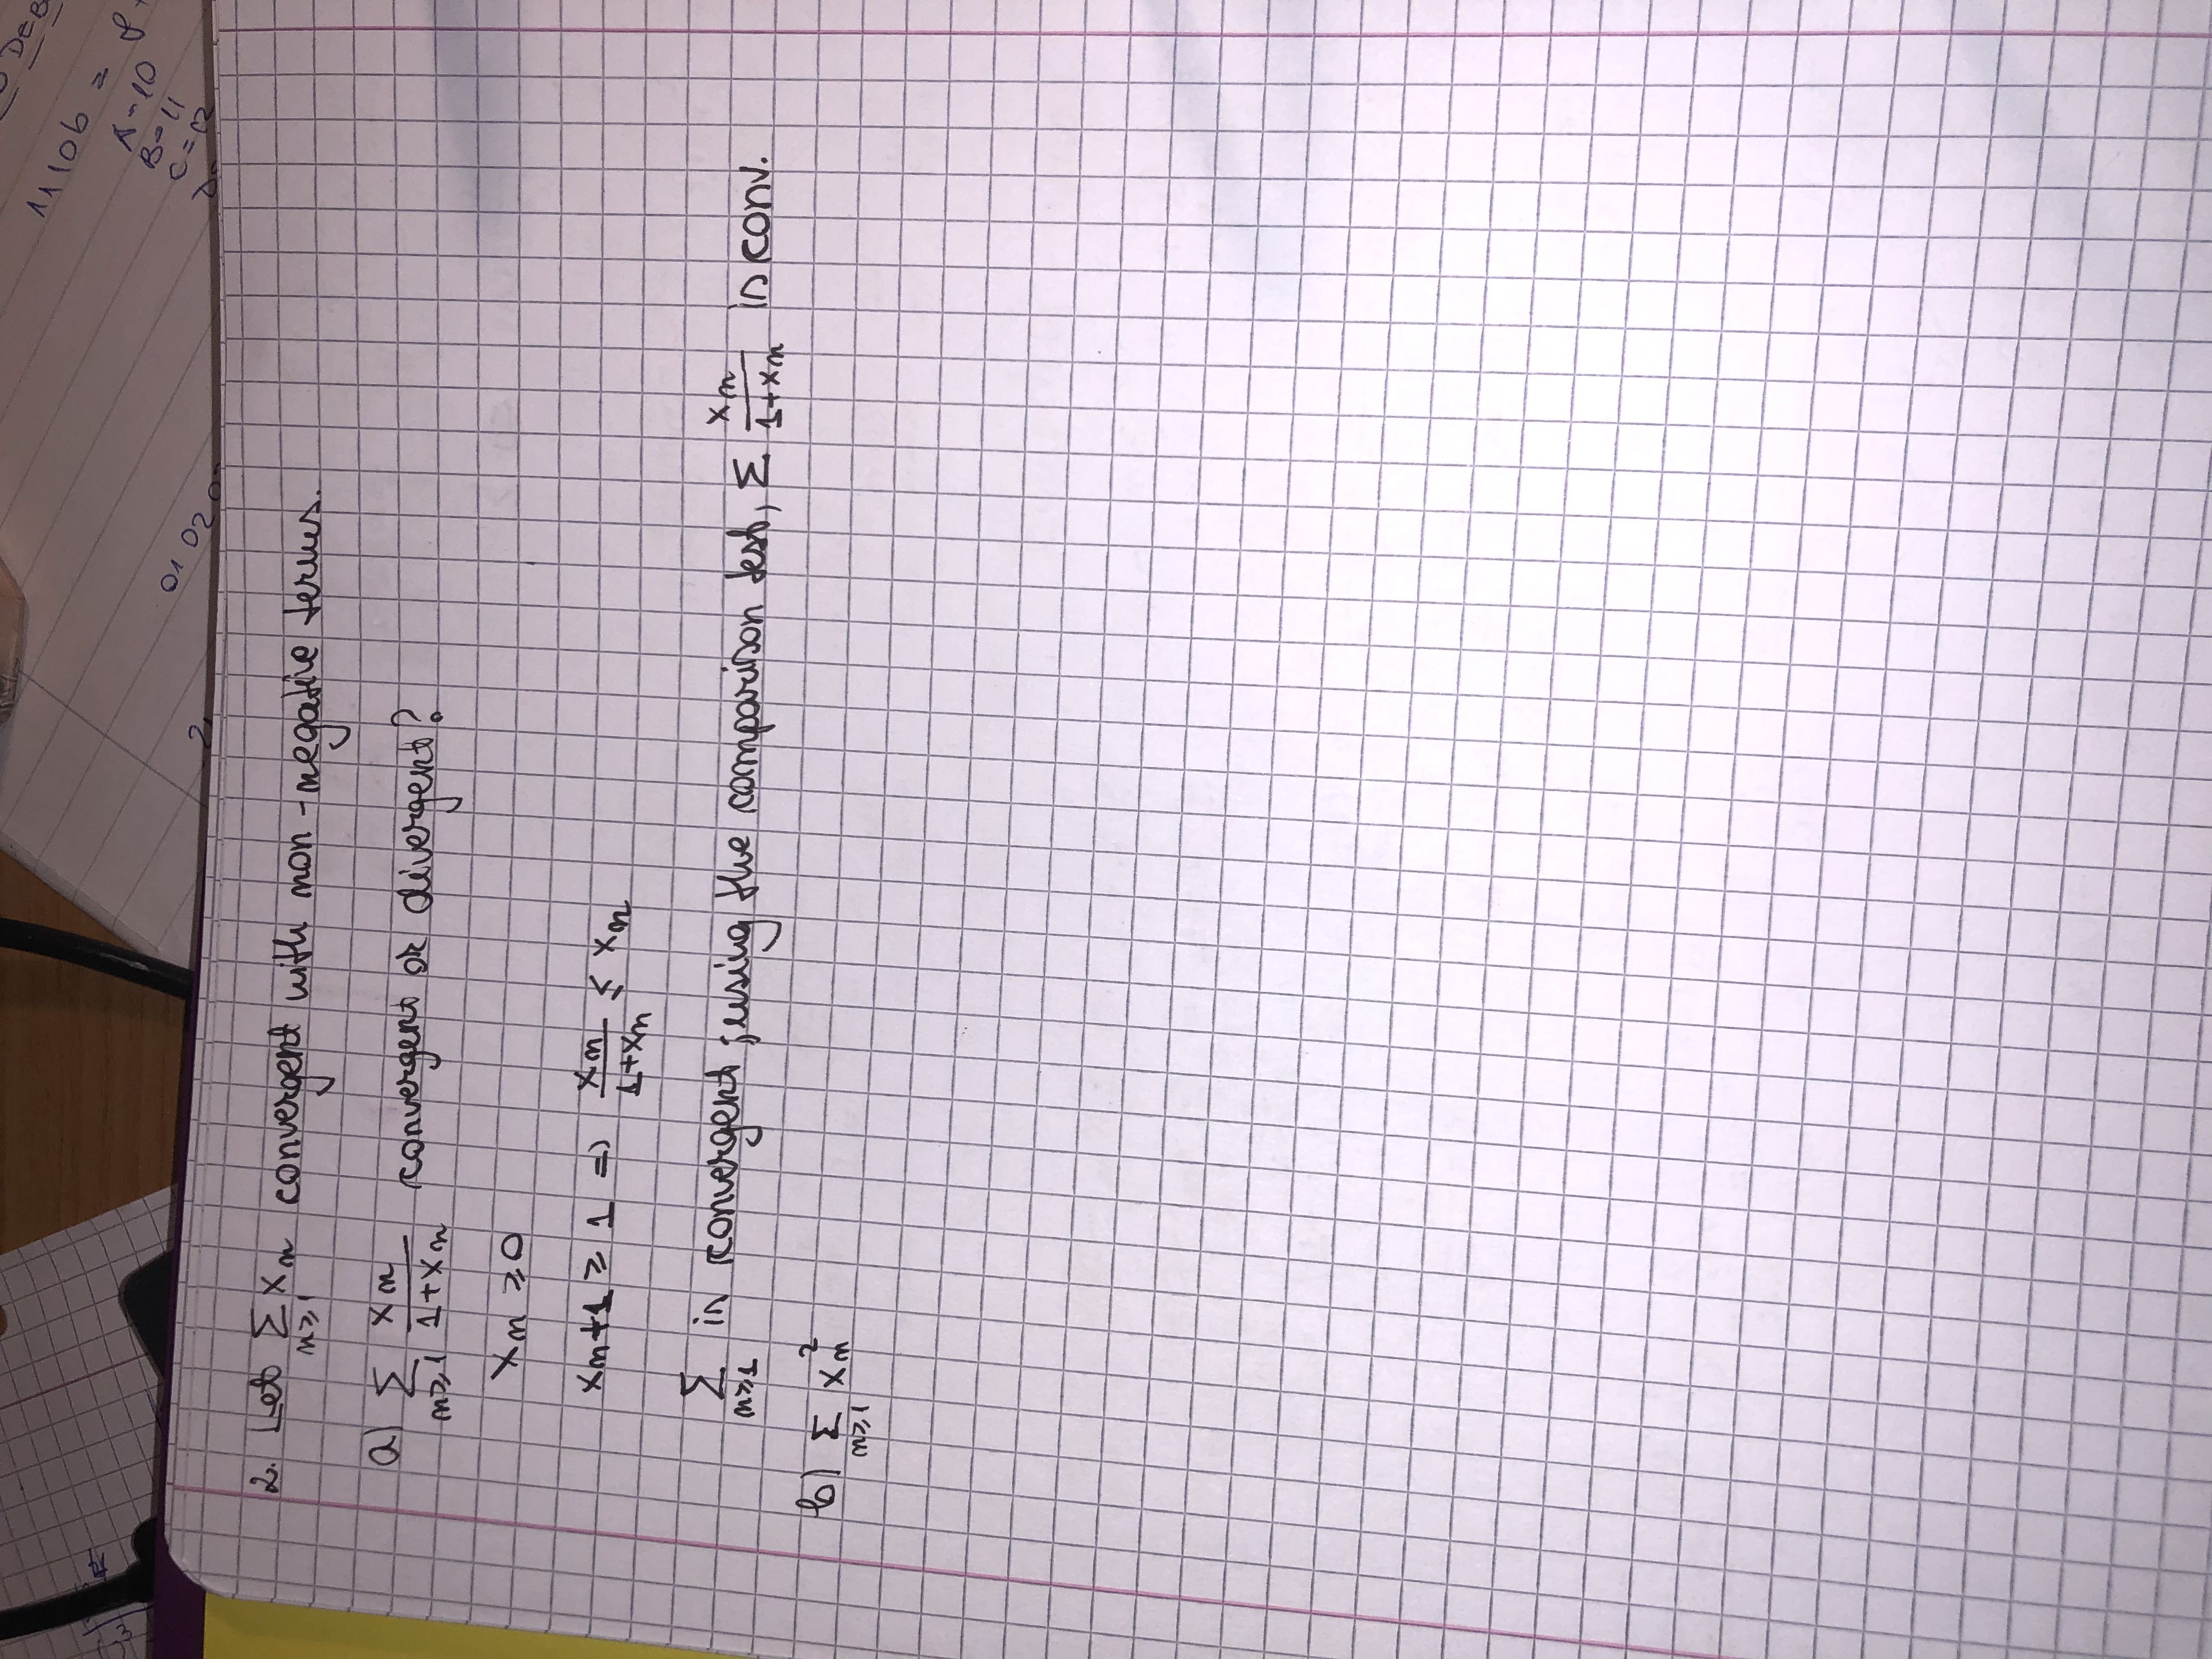 DEB
1110b = 8+
A-10
B=11
C=12
01 02
2.
2. Let Σ xn convergent with non-negative terms.
n≥1
a) Σ xn/(1+xn) convergent or divergent?
n≥1
xn ≥ 0
xn+1 ≥ 1 => xn/(1+xn) ≤ xn
Σ is convergent; using the comparison test, Σ xn/(1+xn) is conv.
n≥1
b) Σ xn²
n≥1